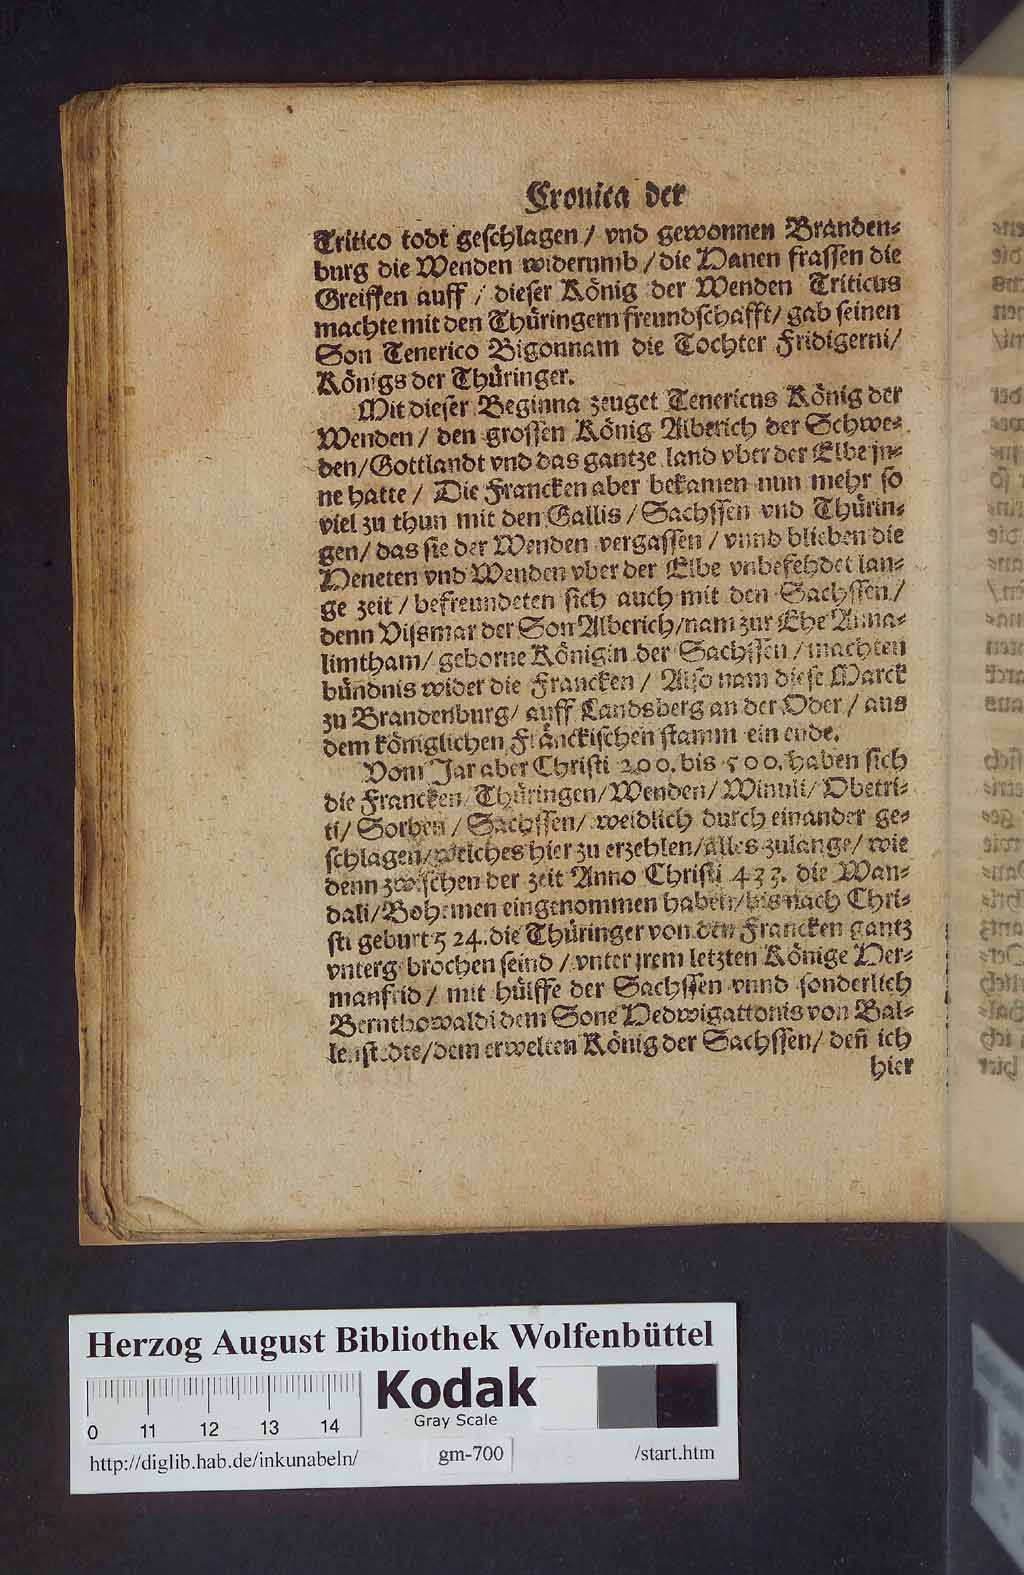 Cronica der
Tritico todt geschlagen / vnd gewonnen Branden⸗
burg die Wenden widerumb / die Hanen frassen die
Greiffen auff / dieser König der Wenden Triticus
machte mit den Thüringern freundschafft / gab seinen
Son Tenerico Bigonnam die Tochter Fridigerni /
Königs der Thüringer.
Mit dieser Beginna zeuget Tenericus König der
Wenden / den grossen König Alberich der Schwe⸗
den / Gottlandt vnd das gantze land vber der Elbe jn⸗
ne hatte / Die Francken aber bekamen nun mehr so
viel zu thun mit den Gallis / Sachssen vnd Thürin⸗
gen / das sie der Wenden vergassen / vnnd blieben die
Heneten vnd Wenden vber der Elbe vnbefehdet lan⸗
ge zeit / befreundeten sich auch mit den Sachssen /
denn Vißmar der Son Alberich / nam zur Ehe Anna⸗
limtham / geborne Königin der Sachssen / machten
bündnis wider die Francken / Also nam diese Marck
zu Brandenburg / auff Landsberg an der Oder / aus
dem königlichen Fränckischen stamm ein ende.
Vom Jar aber Christi 200. bis 500. haben sich
die Francken / Thüringen / Wenden / Winuli / Obetri⸗
ti / Sorben / Sachssen / weidlich durch einander ge⸗
schlagen / welches hier zu erzehlen / alles zulange / wie
denn zwischen der zeit Anno Christi 433. die Wan⸗
dali / Bohemen eingenommen haben / bis nach Chri⸗
sti geburt 524. die Thüringer von den Francken gantz
vntergebrochen seind / vnter jrem letzten Könige Her⸗
manfrid / mit hülffe der Sachssen vnnd sonderlich
Bernthowaldi dem Sone Hedwigattonis von Bal⸗
lenstedte / dem erwelten König der Sachssen / deñ ich
hier
Herzog August Bibliothek Wolfenbüttel
Kodak
Gray Scale
0 11 12 13 14
http://diglib.hab.de/inkunabeln/ gm-700 /start.htm